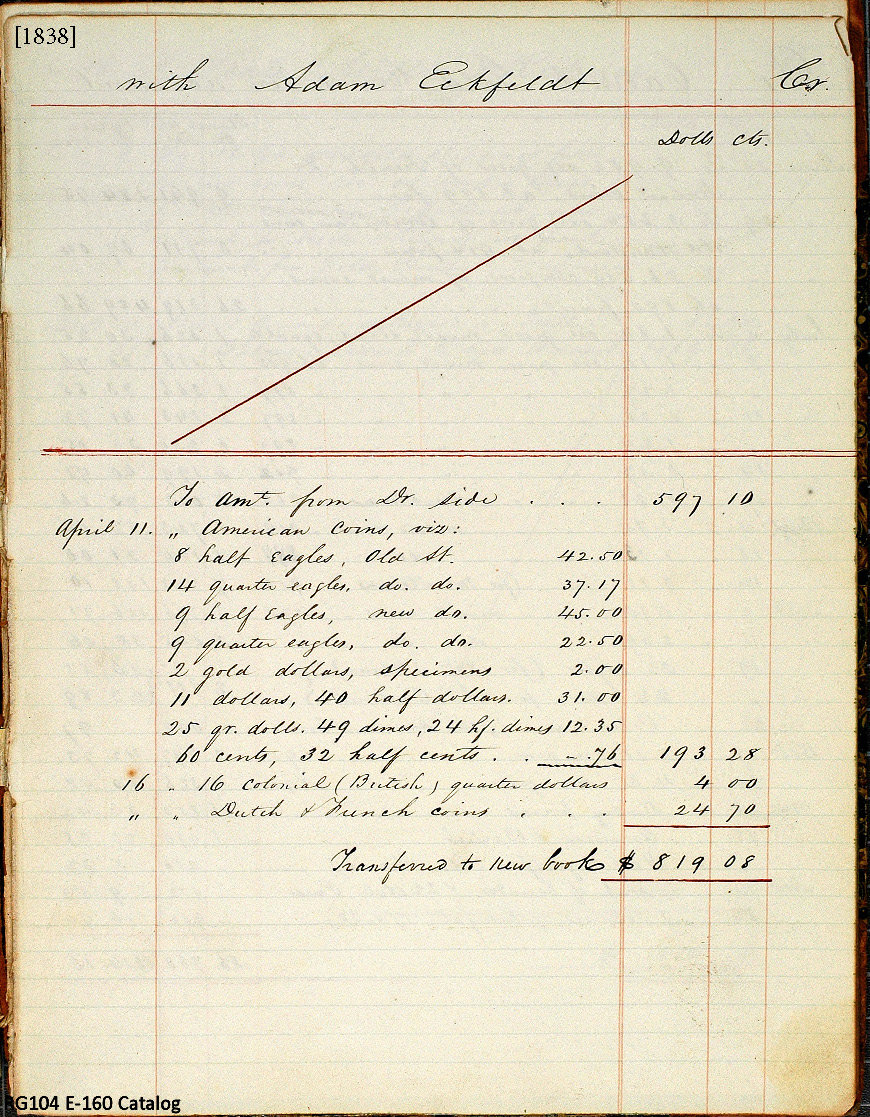 [1838]
with Adam Eckfeldt Cr.
Dolls cts.
To amt. from Dr. side . . . 597 10
April 11. „ American coins, viz:
8 half Eagles, Old St. 42.50
14 quarter eagles. do. do. 37.17
9 half Eagles, new do. 45.00
9 quarter eagles, do. do. 22.50
2 gold dollars, specimens 2.00
11 dollars, 40 half dollars. 31.00
25 qr. dolls. 49 dimes, 24 hf. dimes 12.35
60 cents, 32 half cents . . .76 193 28
16 „ 16 colonial (British) quarter dollars 4 00
„ „ Dutch & French coins . . . 24 70
Transferred to new book $ 819 08
RG104 E-160 Catalog